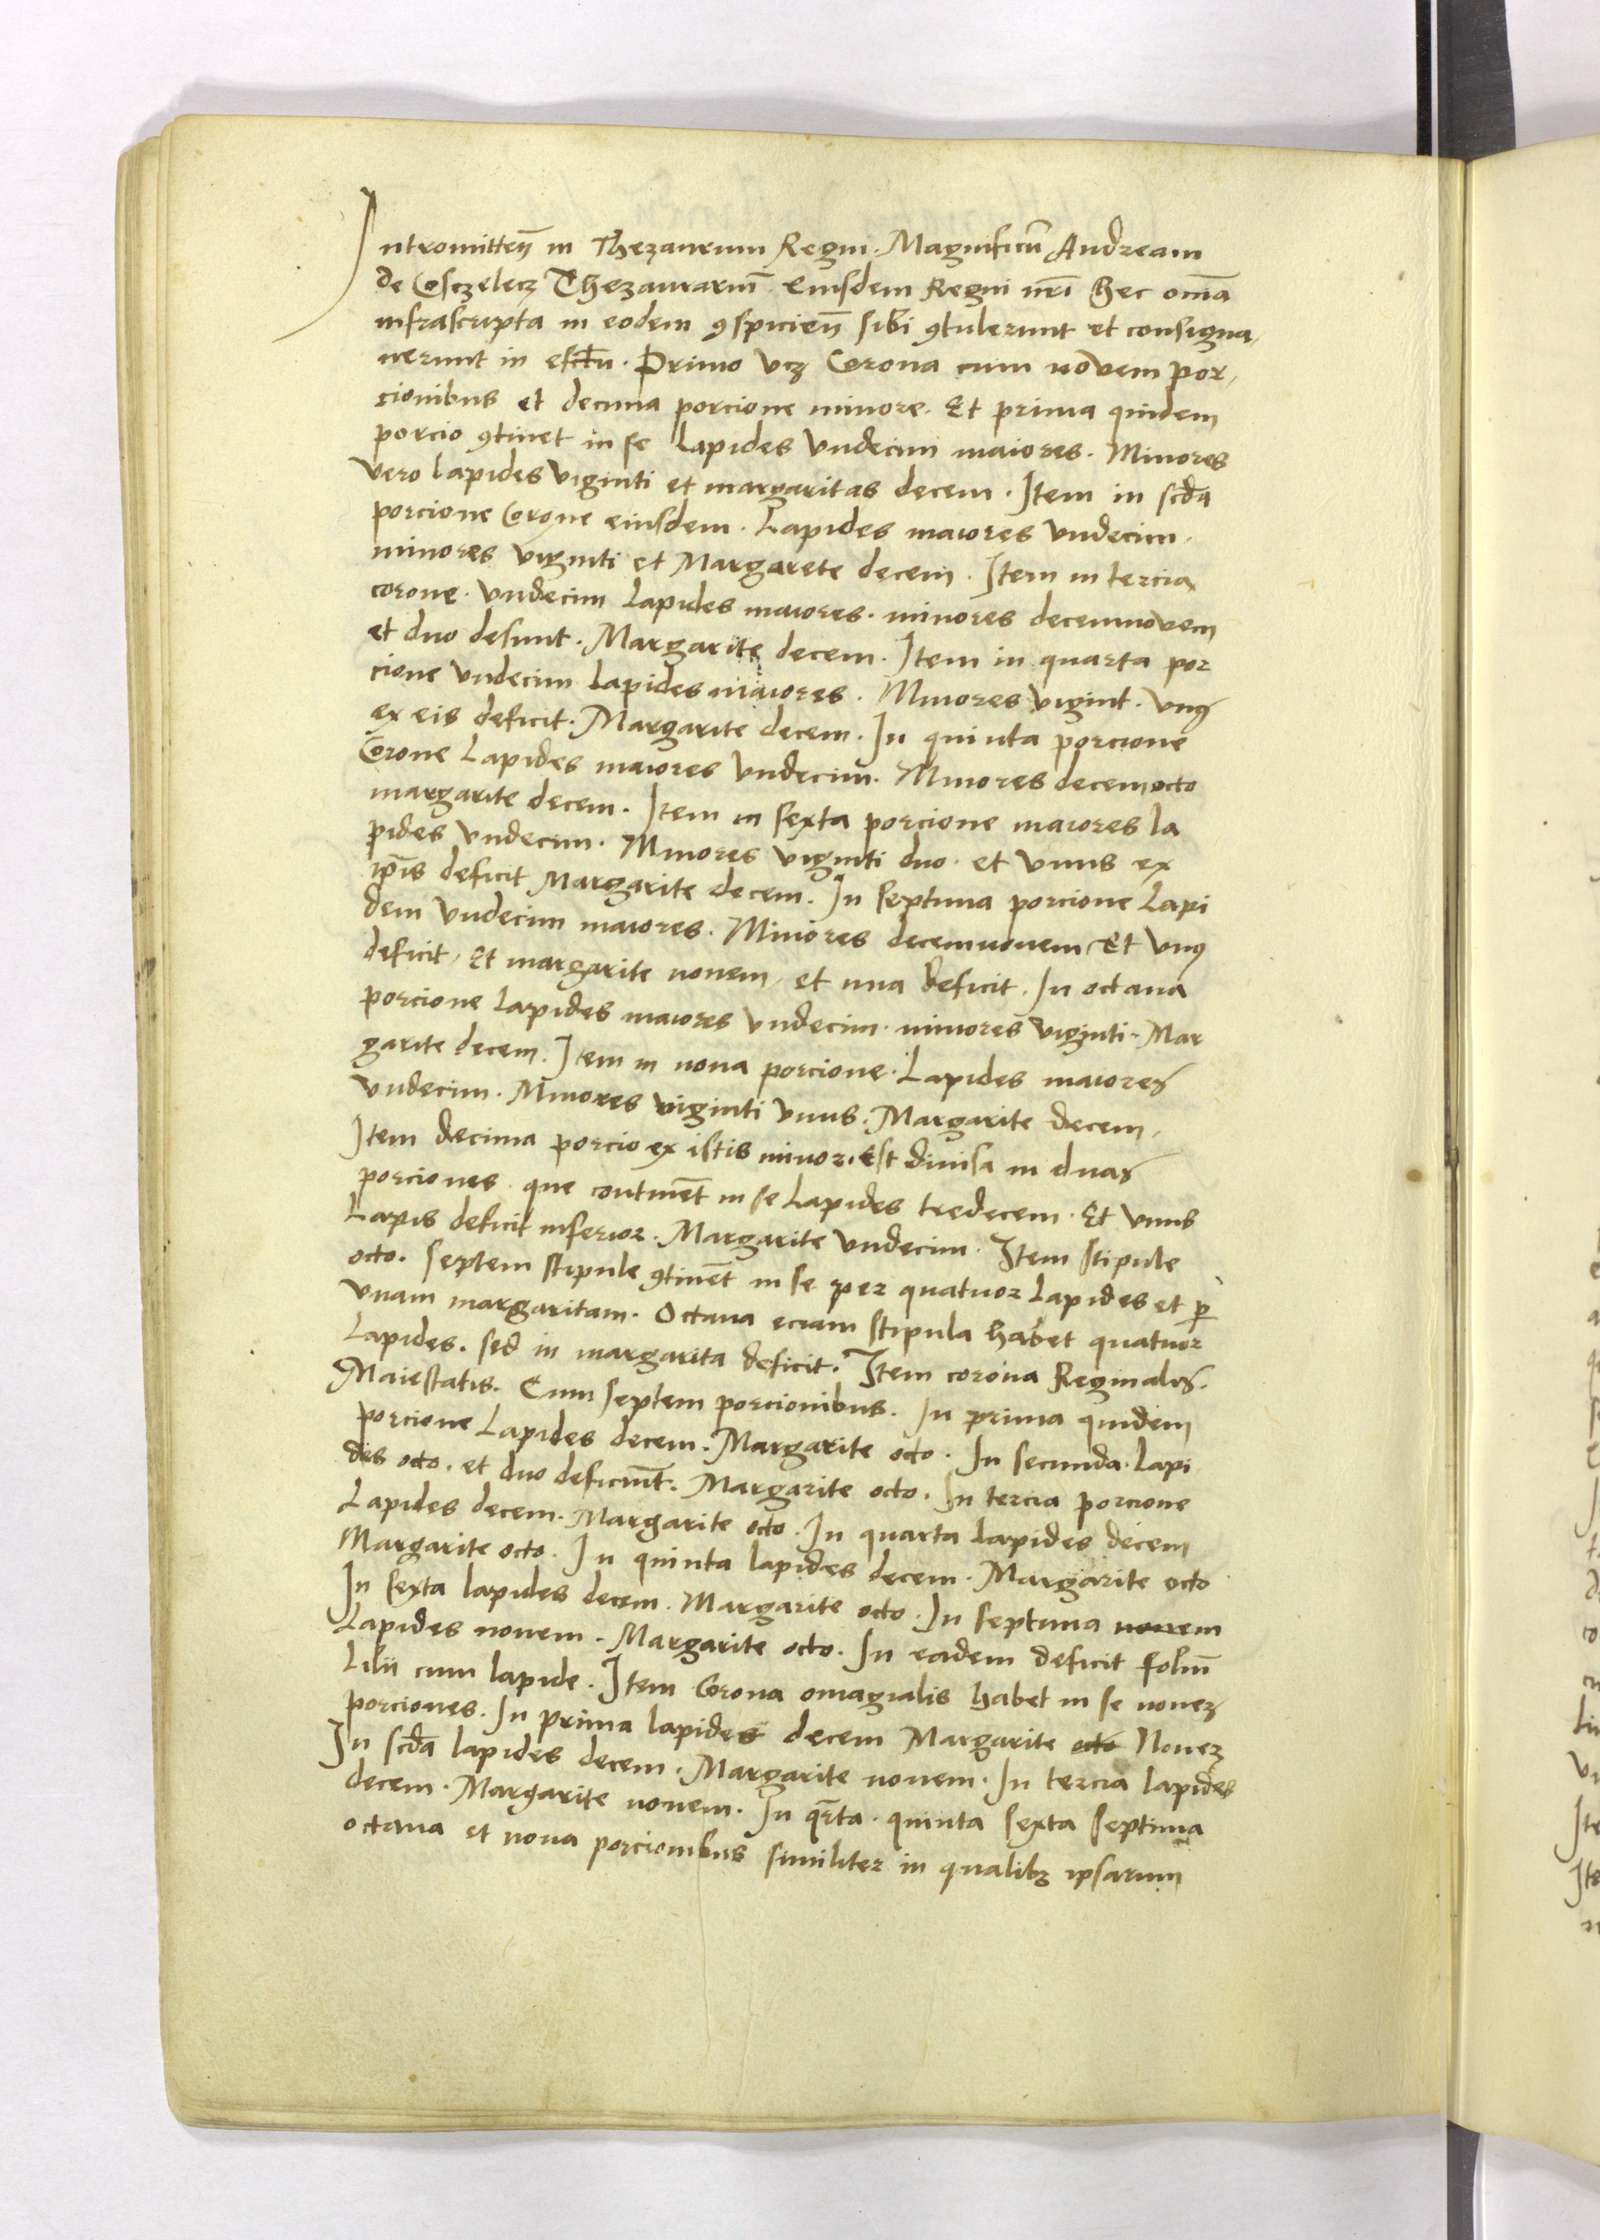 Intromitten̄ in Thezaurum Regni. Magnificū Andream
de Cosczelecz Thezaurariū Eiusdem Regni nr̄i hec om̄ia
infrascripta in eodem ꝯspicien̄ sibi ꝯtulerunt et consigna,
uerunt in effctu. Primo vcz Corona cum novem por,
cionibus et decima porcione minore. Et prima quidem
porcio ꝯtinet in se Lapides Vndecim maiores. Minores
Vero lapides viginti et margaritas decem. Item in scd̄a
porcione Corone eiusdem. Lapides maiores Vndecim.
minores viginti et Margarete decem. Item in tercia
corone. Vndecim Lapides maiores. minores decemnovem
et duo desunt. Margarite decem. Item in quarta por
cione Vndecim Lapides maiores. Minores vigint. Vnꝰ
ex eis deficit. Margarite decem. In quinta porcione
Corone Lapides maiores Vndecim. Minores decemocto
margarite decem. Item in sexta porcione maiores la
pides Vndecim. Minores viginti duo. et Vnus ex
ip̄is deficit Margarite decem. In septima porcione Lapi
dem Vndecim maiores. Minores decemnouem Et Vnꝰ
deficit, Et margarite nouem, et una deficit. In octaua
porcione Lapides maiores Vndecim. minores viginti. Mar
garite decem. Item in nona porcione. Lapides maiores
Vndecim. Minores viginti Vnus. Margarite decem,
Item decima porcio ex istis minor. Est diuisa in duas
porciones. que continēt in se Lapides tredecem. Et Vnus
Lapis deficit inferior. Margarite Vndecim. Item stipule
octo. Septem stipule ꝯtinēt in se per quatuor Lapides et ꝑ
Vnam margaritam. Octaua eciam stipula habet quatuor
Lapides. sed in margarita deficit. Item corona Reginalis.
Maiestatis. Cum septem porcionibus. In prima quidem
porcione Lapides decem. Margarite octo. In secunda. Lapi
des octo. et duo deficiūt. Margarite octo. In tercia porcione
Lapides decem. Margarite octo. In quarta Lapides decem
Margarite octo. In quinta lapides decem. Margarite octo
In sexta lapides decem. Margarite octo. In septima nouem
Lapides nouem. Margarite octo. In eadem deficit foliū
Lilii cum lapide. Item Corona omagialis habet in se nouez
porciones. In prima lapides decem Margarite octo Nouez
In scd̄a lapides decem. Margarite nouem. In tercia lapides
decem. Margarite nouem. In qrta. quinta sexta septima
octaua et nona porcionibus similiter in qualibꝫ ipsarum